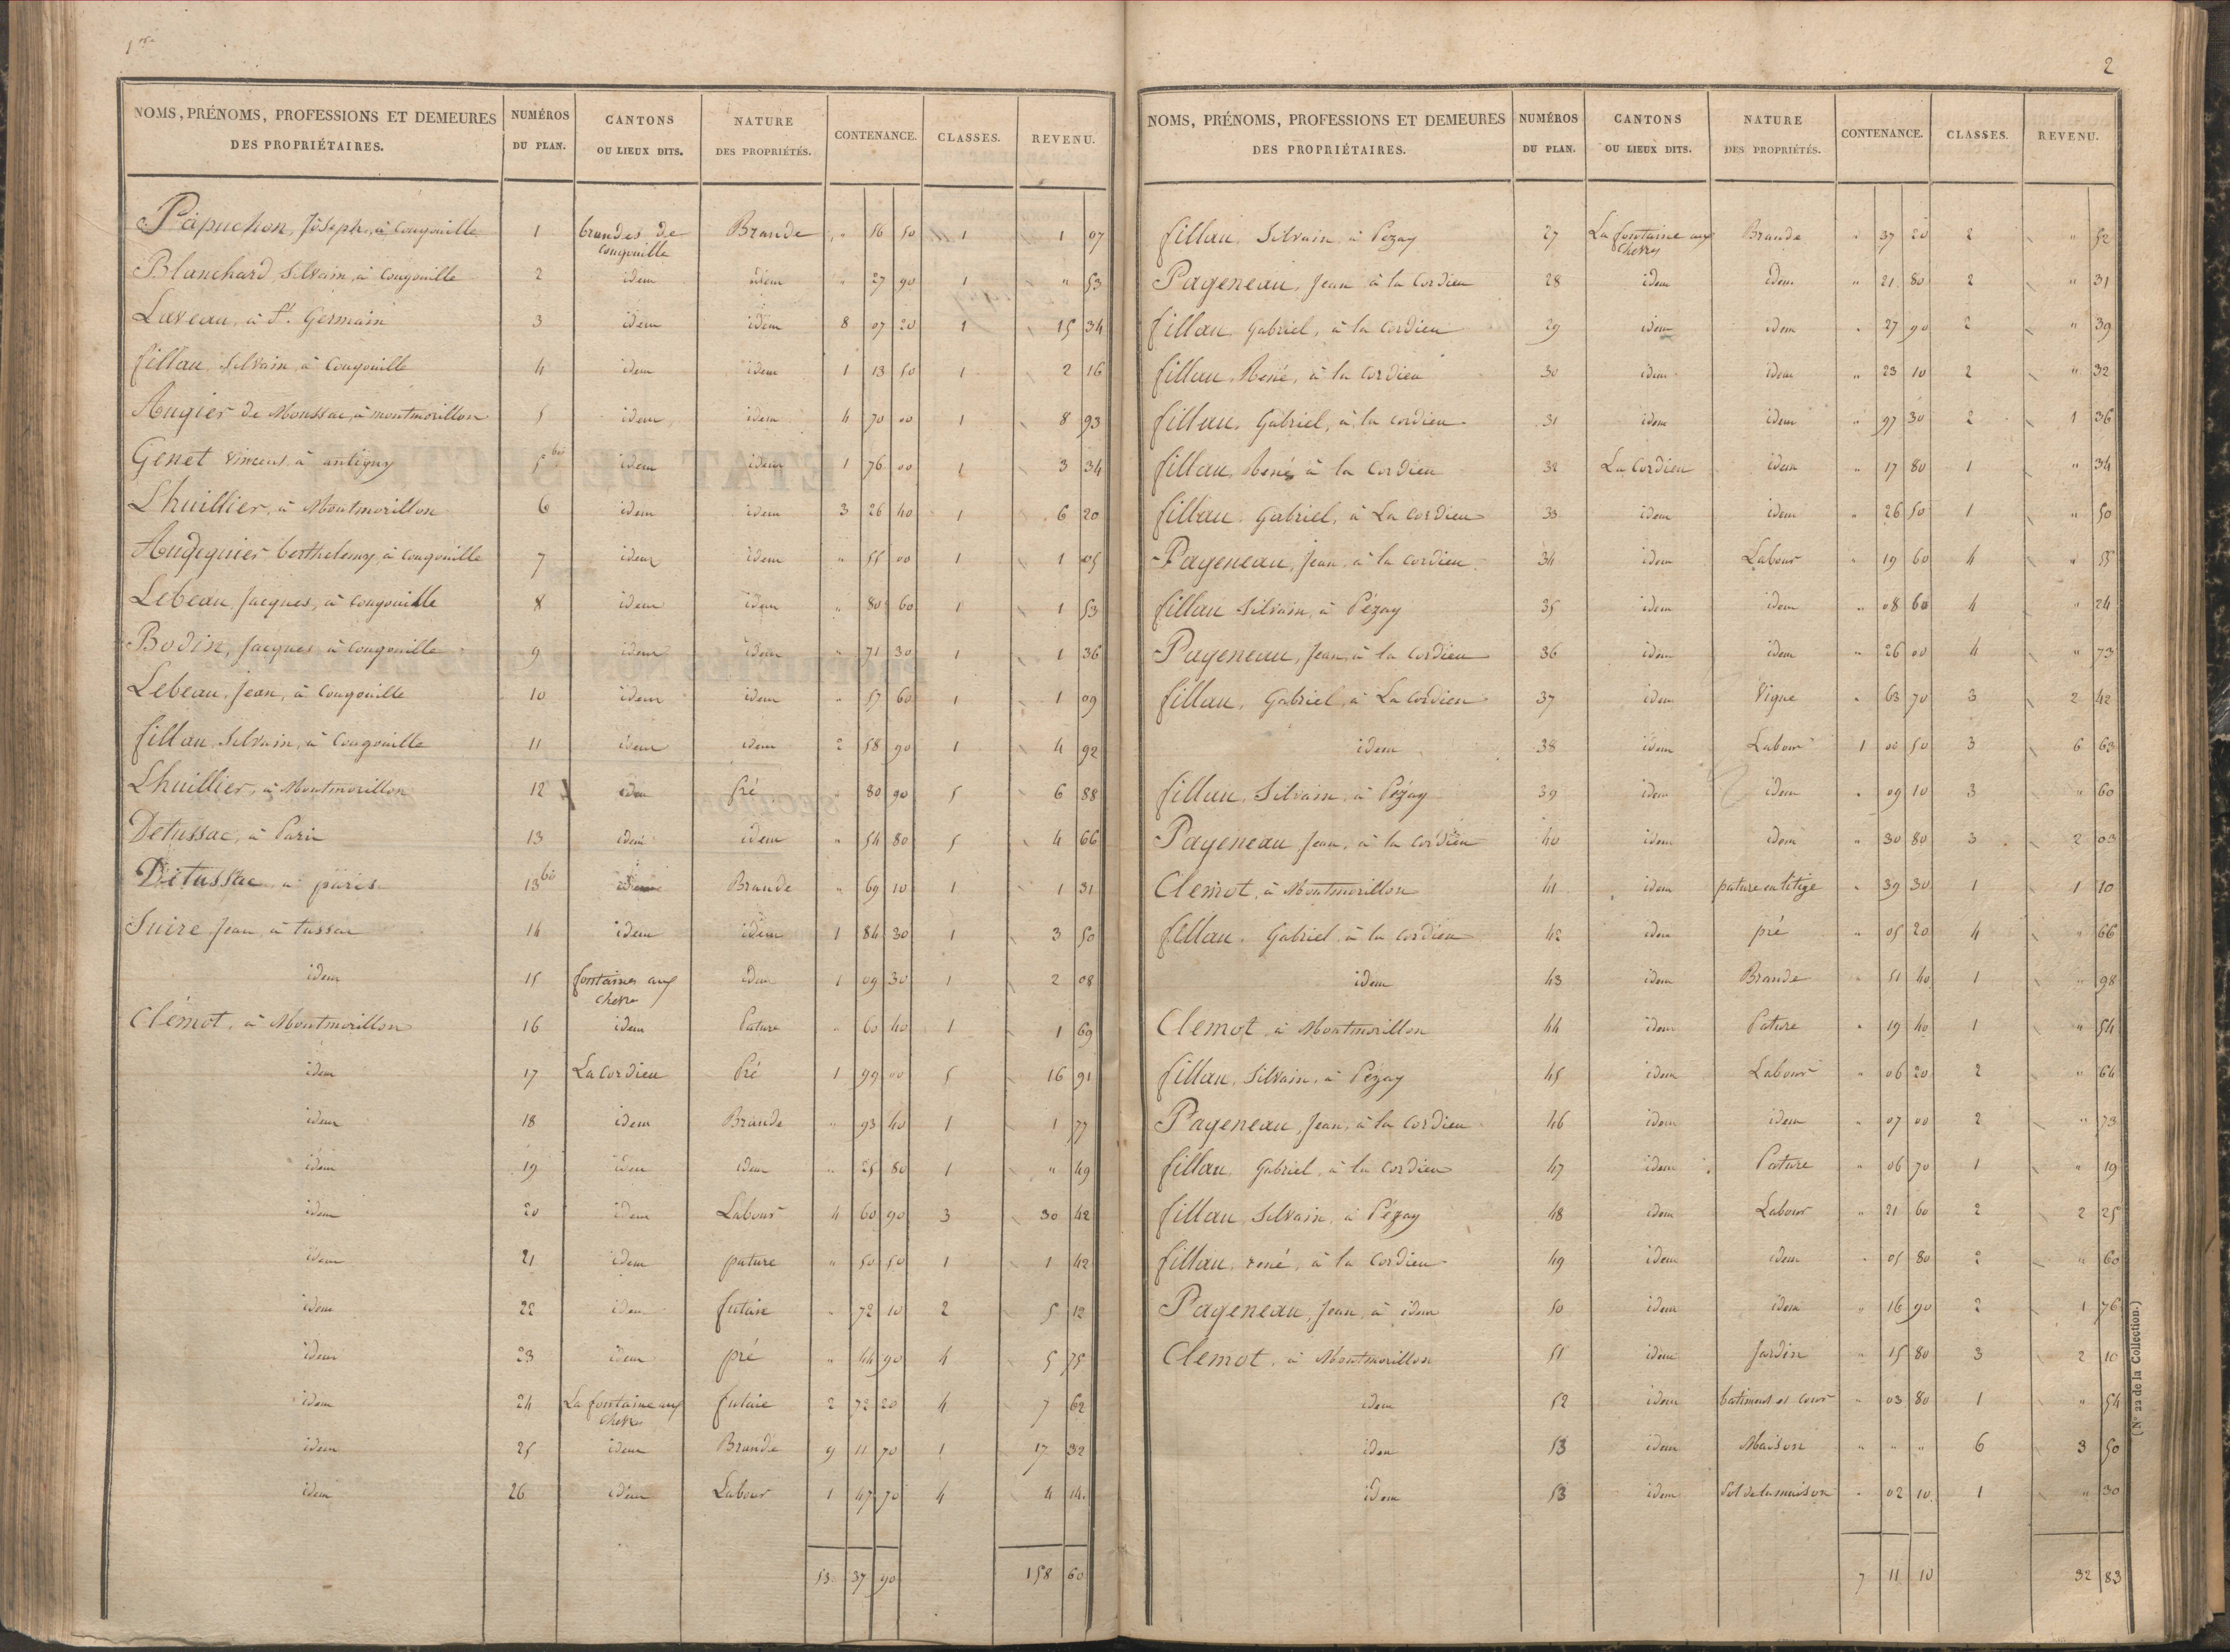 1re
NOMS, PRÉNOMS, PROFESSIONS ET DEMEURES DES PROPRIÉTAIRES. NUMÉROS DU PLAN. CANTONS OU LIEUX DITS. NATURE DES PROPRIÉTÉS. CONTENANCE. CLASSES. REVENU.
Papuchon, Joseph, à Cougouille 1 brandes de cougouille Brande " 56 50 1 1 07
Blanchard, Silvain, à Cougouille 2 idem idem " 27 90 1 " 53
Laveau, à St. Germain 3 idem idem 8 07 20 1 15 34
fillau, Silvain, à Cougouille 4 idem idem 1 13 50 1 2 16
Augier de Moussac, à montmorillon 5 idem idem 4 70 00 1 8 93
Genet vincent, à antigny 5 bis idem idem 1 76 00 1 3 34
Lhuillier, à Montmorillon 6 idem idem 3 26 40 1 6 20
Audiguier berthelemy, à Cougouille 7 idem idem " 55 00 1 1 05
Lebeau, Jacques, à Cougouille 8 idem idem " 80 60 1 1 53
Bodin, Jacques, à Cougouille 9 idem idem " 71 30 1 1 36
Lebeau, jean, à Cougouille 10 idem idem " 57 60 1 1 09
fillau, Silvain, à Cougouille 11 idem idem 2 58 90 1 4 92
Lhuillier, à Montmorillon 12 idem pré " 80 90 5 6 88
Detussac, à Paris 13 idem idem " 54 80 5 4 66
Detussac, à paris 13 bis idem Brande " 69 10 1 1 31
Suire, Jean, à tussac 14 idem idem 1 84 30 1 3 50
idem 15 fontaines aux chevres idem 1 09 30 1 2 08
Clémot, à Montmorillon 16 idem Pature " 60 40 1 1 69
idem 17 La Cordieu Pré 1 99 00 5 16 91
idem 18 idem Brande " 93 40 1 1 77
idem 19 idem idem " 25 80 1 " 49
idem 20 idem Labour 4 60 90 3 30 42
idem 21 idem pature " 50 50 1 1 42
idem 22 idem futaie " 72 10 2 5 12
idem 23 idem pré " 44 90 4 5 75
idem 24 La fontaine aux chevres futaie 2 72 20 4 7 62
idem 25 idem Brande 9 11 70 1 17 32
idem 26 idem Labour 1 47 70 4 4 14
53 37 90 158 60
2
NOMS, PRÉNOMS, PROFESSIONS ET DEMEURES DES PROPRIÉTAIRES. NUMÉROS DU PLAN. CANTONS OU LIEUX DITS. NATURE DES PROPRIÉTÉS. CONTENANCE. CLASSES. REVENU.
fillau, Silvain, à Pézay 27 La fontaine aux Chevres Brande " 37 20 2 " 52
Pageneau, Jean à la Cordieu 28 idem idem " 21 80 2 " 31
fillau Gabriel, à la Cordieu 29 idem idem " 27 90 2 " 39
fillau, René, à la Cordieu 30 idem idem " 23 10 2 " 32
fillau, Gabriel, à la cordieu 31 idem idem " 97 30 2 1 36
fillau, René, à la Cordieu 32 La Cordieu idem " 17 80 1 " 34
fillau, Gabriel, à La Cordieu 33 idem idem " 26 50 1 " 50
Pageneau, Jean, à la cordieu 34 idem Labour " 19 60 4 " 55
fillau Silvain, à Pézay 35 idem idem " 08 60 4 " 24
Pageneau, Jean, à la Cordieu 36 idem idem " 26 00 4 " 73
fillau, Gabriel, à La Cordieu 37 idem Vigne " 63 70 3 2 42
idem 38 idem Labour 1 00 50 3 6 63
fillau, Silvain, à Pézay 39 idem idem " 09 10 3 " 60
Pageneau Jean, à la Cordieu 40 idem idem " 30 80 3 2 03
Clemot, à Montmorillon 41 idem pature en litige " 39 30 1 1 10
fillau, Gabriel, à la Cordieu 42 idem pré " 05 20 4 " 66
idem 43 idem Brande " 51 40 1 " 98
Clemot, à Montmorillon 44 idem Pature " 19 40 1 " 54
fillau, Silvain, à Pézay 45 idem Labour " 06 20 2 " 64
Pageneau, Jean, à la Cordieu 46 idem idem " 07 00 2 " 73
fillau, Gabriel, à la Cordieu 47 idem Pature " 06 70 1 " 19
fillau, Silvain, à Pézay 48 idem Labour " 21 60 2 2 25
fillau, rené, à la Cordieu 49 idem idem " 05 80 2 " 60
Pageneau, Jean, à idem 50 idem idem " 16 90 2 1 76
Clemot, à Montmorillon 51 idem Jardin " 15 80 3 2 10
idem 52 idem batiment et cour " 03 80 1 " 54
idem 53 idem Maison " " " 6 3 50
idem 53 idem Sol de la maison " 02 10 1 " 30
7 11 10 32 83
(N° 22 de la Collection.)